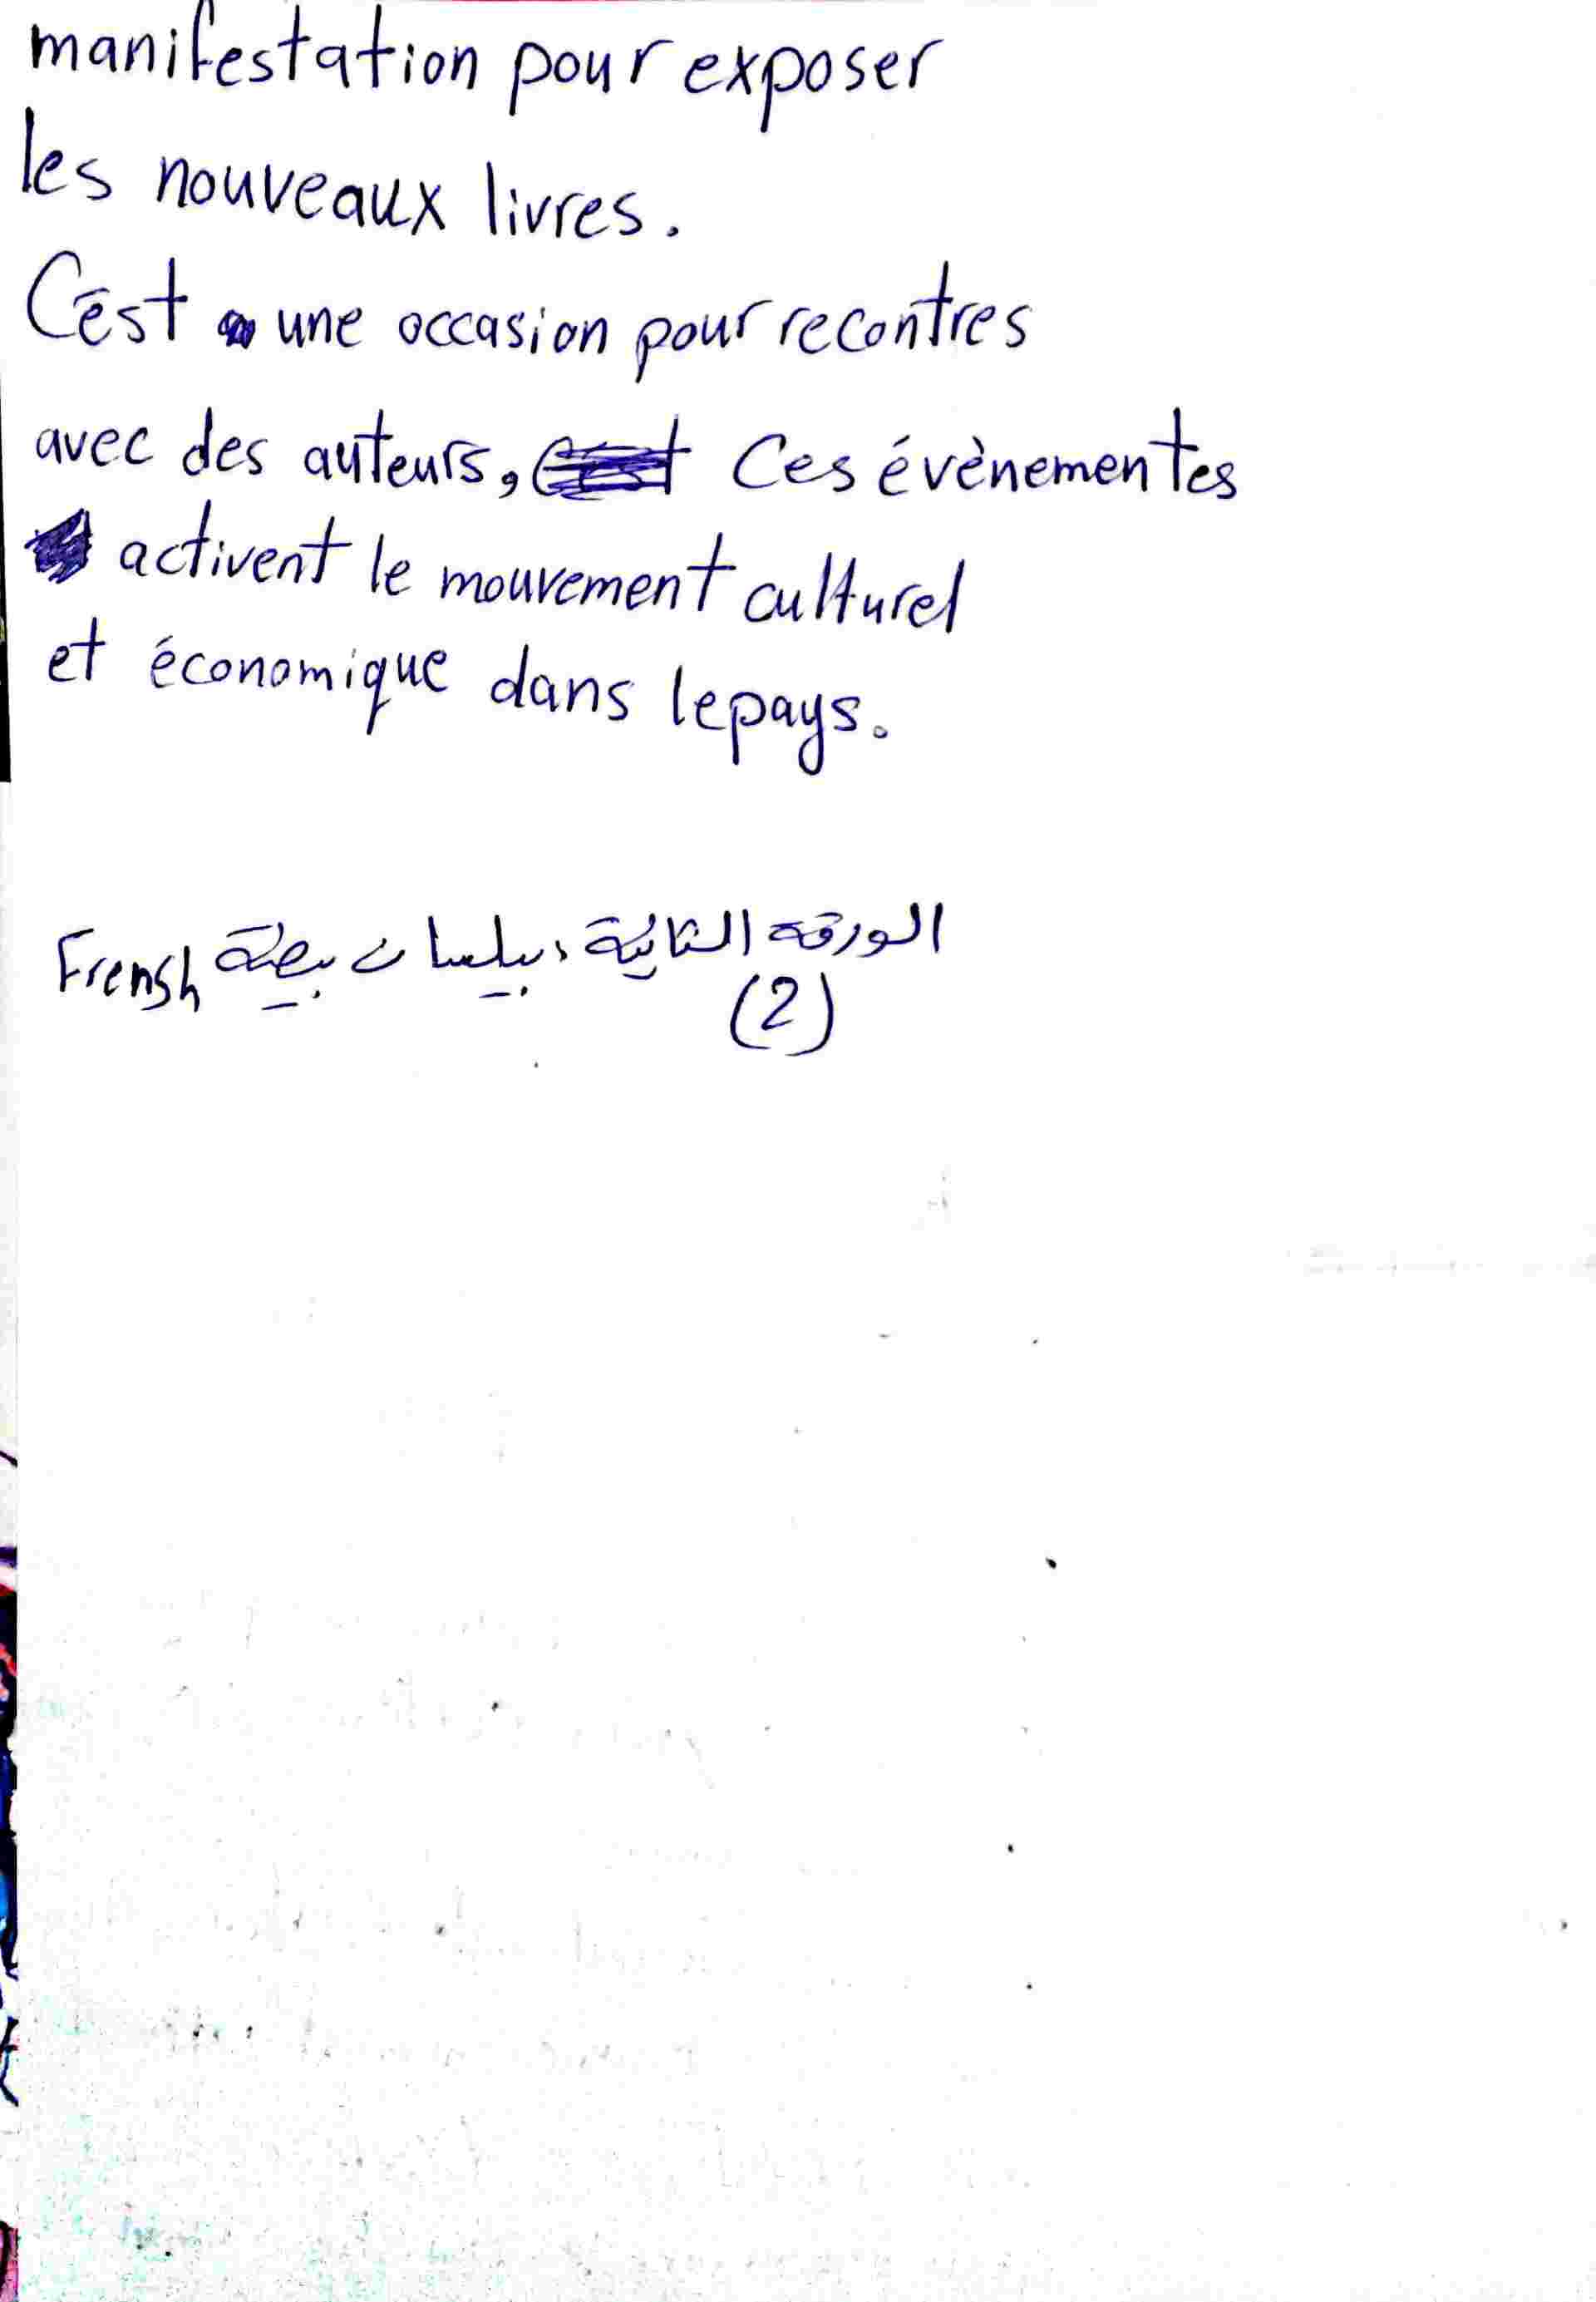 manifestation pour exposer
les nouveaux livres.
C'est une occasion pour recontres
avec des auteurs, Ces évènementes
activent le mouvement culturel
et économique dans le pays.
الورقة الثانية بيلسان بصلة Frensh
(2)